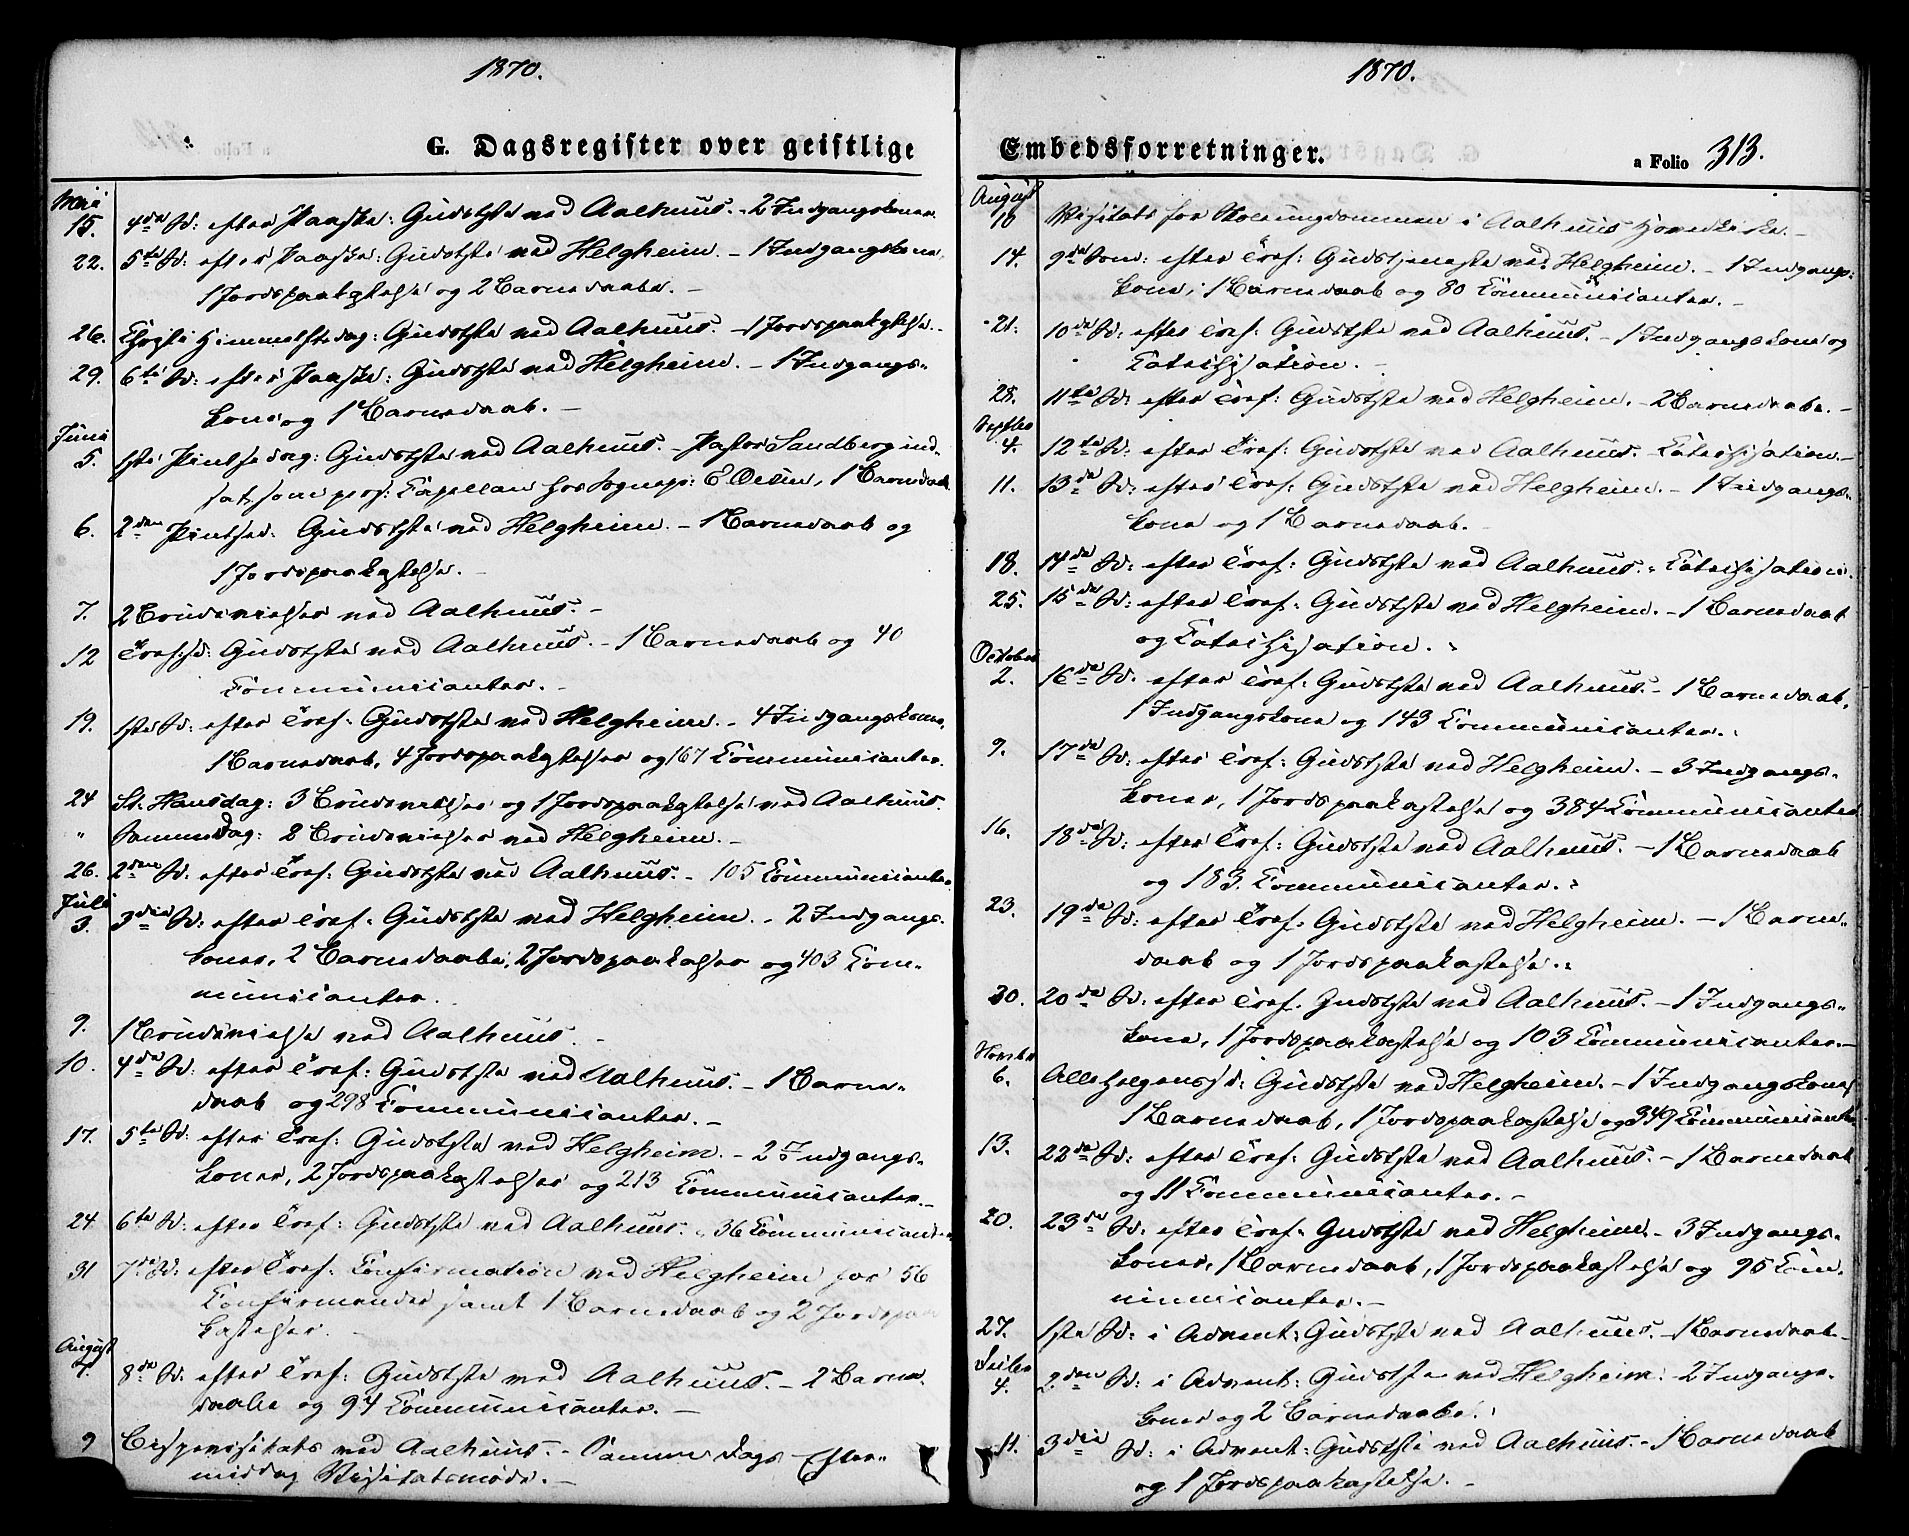 1870.
G. Dagsregister over geistlige
Mai
15. 4de Sd: efter Paaske: Gudstste ved Aalhuus. - 2 Indgangskoner.
22. 5te Sd: efter Paaske: Gudstste ved Helgheim. - 1 Indgangskone,
1 Jordspaakastelse og 2 Barnedaabe. -
26. Christi Himmelfsdag: Gudstste ved Aalhuus. - 1 Jordspaakastelse. -
29. 6te Sd: efter Paaske: Gudstste ved Helgheim. - 1 Indgangs-
kone og 1 Barnedaab. -
Juni
5. 1ste Pintsedag: Gudstste ved Aalhuus. - Pastor Sandberg ind-
sat som pers: Capellan hos Sognepr: E. , 1 Barnedaab
6. 2den Pintsed: Gudstste ved Helgheim. - 1 Barnedaab og
1 Jordspaakastelse. -
7. 2 Brudevielser ved Aalhuus. -
12 Trefsd: Gudstste ved Aalhuus. - 1 Barnedaab og 40
Communicanter. -
19. 1ste Sd: efter Tref: Gudstste ved Helgheim. - 4 Indgangskoner,
1 Barnedaab, 4 Jordspaakastelser og 167 Communicanter.
24 St. Hansdag: 3 Brudevielser og 1 Jordspaakastelse ved Aalhuus.
" Samme Dag: 2 Brudevielser ved Helgheim. -
26. 2den Sd: efter Tref: Gudstste ved Aalhuus. - 105 Communicanter.
Juli
3. 3die Sd: efter Tref: Gudstste ved Helgheim. - 2 Indgangs-
koner, 2 Barnedaabe, 2 Jordspaakastelser og 403 Com-
municanter.
9. 1 Brudevielse ved Aalhuus. -
10. 4de Sd: efter Tref: Gudstste ved Aalhuus. - 1 Barne-
daab og 298 Communicanter. -
17. 5te Sd: efter Tref: Gudstste ved Helgheim. - 2 Indgangs-
koner, 2 Jordspaakastelser og 213 Communicanter. -
24. 6te Sd: efter Tref: Gudstste ved Aalhuus. - 36 Communicanter
31 7de Sd: efter Tref: Confirmation ved Helgheim for 56
Confirmander samt 1 Barnedaab og 2 Jordspaa
kastelser. -
August
7. 8de Sd: efter Tref: Gudstste ved Aalhuus. - 2 Barne-
daabe og 94 Communicanter. -
9 Bispevisitats ved Aalhuus. - Samme Dags Efter-
middag Visitatsmøde. -
1870.
Embedsforretninger. a Folio 313.
August
10 Visitats for Skoleungdommen i Aalhuus Hovedkirke. -
14. 9de Sønd: efter Tref: Gudstjeneste ved Helgheim. - 1 Indgangs-
kone, 1 Barnedaab og 80 Communicanter. -
21. 10de Sd: efter Tref: Gudstste ved Aalhuus. - 1 Indgangskone og
Catechisation. -
28. 11te Sd: efter Tref: Gudstste ved Helgheim. - 2 Barnedaabe. -
Septbr
4. 12te Sd: efter Tref: Gudstste ved Aalhuus. Catechisation. -
11. 13de Sd: efter Tref: Gudstste ved Helgheim. - 1 Indgangs-
kone og 1 Barnedaab. -
18. 14de Sd: efter Tref: Gudstste ved Aalhuus. - Catechisation.
25. 15de Sd: efter Tref: Gudstste ved Helgheim. - 1 Barnedaab
og Catechisation. -
October
2. 16de Sd. efter Tref: Gudstste ved Aalhuus. - 1 Barnedaab,
1 Indgangskone og 143 Communicanter. -
9. 17de Sd: efter Tref: Gudstste ved Helgheim. - 3 Indgangs-
koner, 1 Jordspaakastelse og 384 Communicanter
16. 18de Sd: efter Tref: Gudstste ved Aalhuus. - 1 Barnedaab
og 183. Communicanter. -
23. 19de Sd: efter Tref: Gudstste ved Helgheim. - 1 Barne-
daab og 1 Jordspaakastelse. -
30. 20de Sd: efter Tref. Gudstste ved Aalhuus. - 1 Indgangs-
kone, 1 Jordspaakastelse og 103 Communicanter. -
Novbr
6. Allehelgensd: Gudstste ved Helgheim. - 1 Indgangskone,
1 Barnedaab, 1 Jordspaakastelse og 349 Communicanter
13. 22de Sd: efter Tref: Gudstste ved Aalhuus. - 1 Barnedaab
og 11 Communicanter. -
20. 23de Sd: efter Tref: Gudstste ved Helgheim. - 3 Indgangs-
koner, 1 Barnedaab, 1 Jordspaakastelse og 95 Com-
municanter. -
27. 1ste Sd: i Advent: Gudstste ved Aalhuus. - 1 Barnedaab -
Decbr
4. 2den Sd: i Advent: Gudstste ved Helgheim: 2 Indgangs-
koner og 2 Barnedaabe. -
11. 3die Sd: i Advent: Gudstste ved Aalhuus. - 1 Barnedaab
og 1 Jordspaakastelse. -